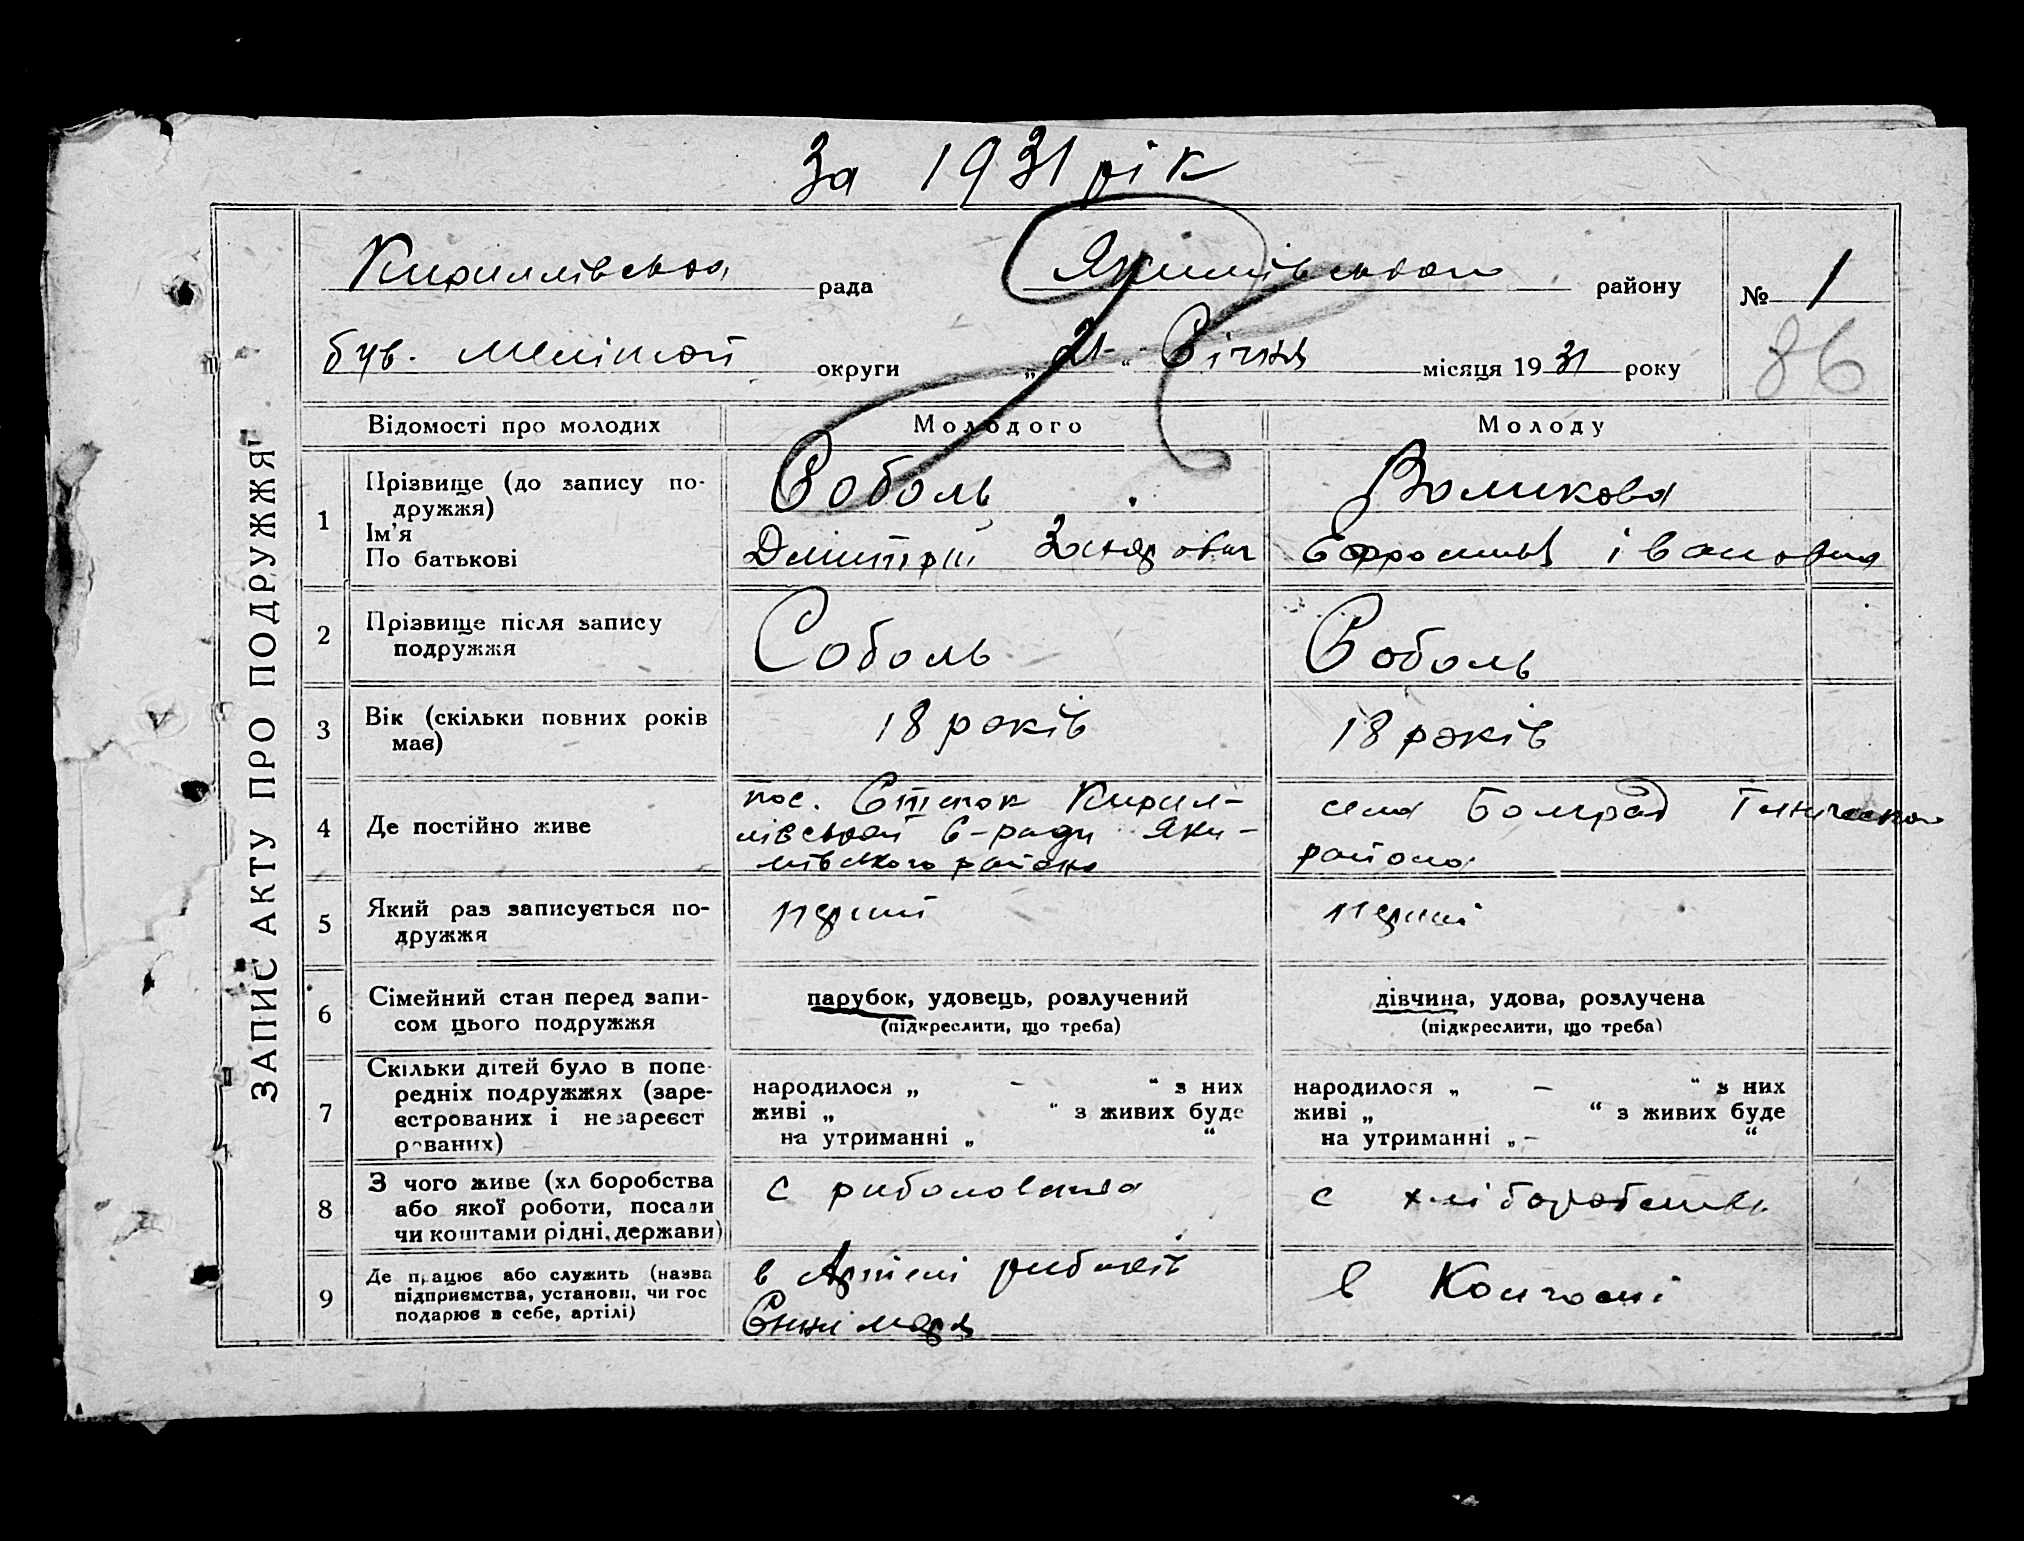 За 1931 рік
ЗАПИС АКТУ ПРО ПОДРУЖЖЯ"
Кирилівська рада Якимівського району № 1
був. Меліт округи „21“ Січня місяця 1931 року
86
Відомості про молодих Молодого Молоду
1 Прізвище (до запису подружжя) Соболь Воликова
Ім'я
По батькові Дмитрій Ефросинья івановна
2 Прізвище після запису Соболь Соболь
подружжя
3 Вік (скільки повних років 18 років 18 років
має)
4 Де постійно живе пос. Степок Кирил-
лівської с-ради Яки-
мівського району
села Болград Генического
района
5 Який раз записується по- перший перший
дружжя
6 Сімейний стан перед запи- парубок, удовець, розлучений дівчина, удова, розлучена
сом цього подружжя (підкреслити, що треба) (підкреслити, що треба)
7 Скільки дітей було в попе- народилося „ - “ з них народилося „ - “ з них
редніх подружжях (заре- живі „ “ з живих буде живі „ “ з живих буде
єстрованих і незареєст на утриманні „ “ на утриманні „ - “
рованих)
8 З чого живе (хл боробства с риболовства с хліборобства
або якої роботи, посади
чи коштами рідні, держави)
9 Де працює або служить (назва в Артелі рибаків в Колгоспі
підприємства, установи, чи гос
подарює в себе, артілі)